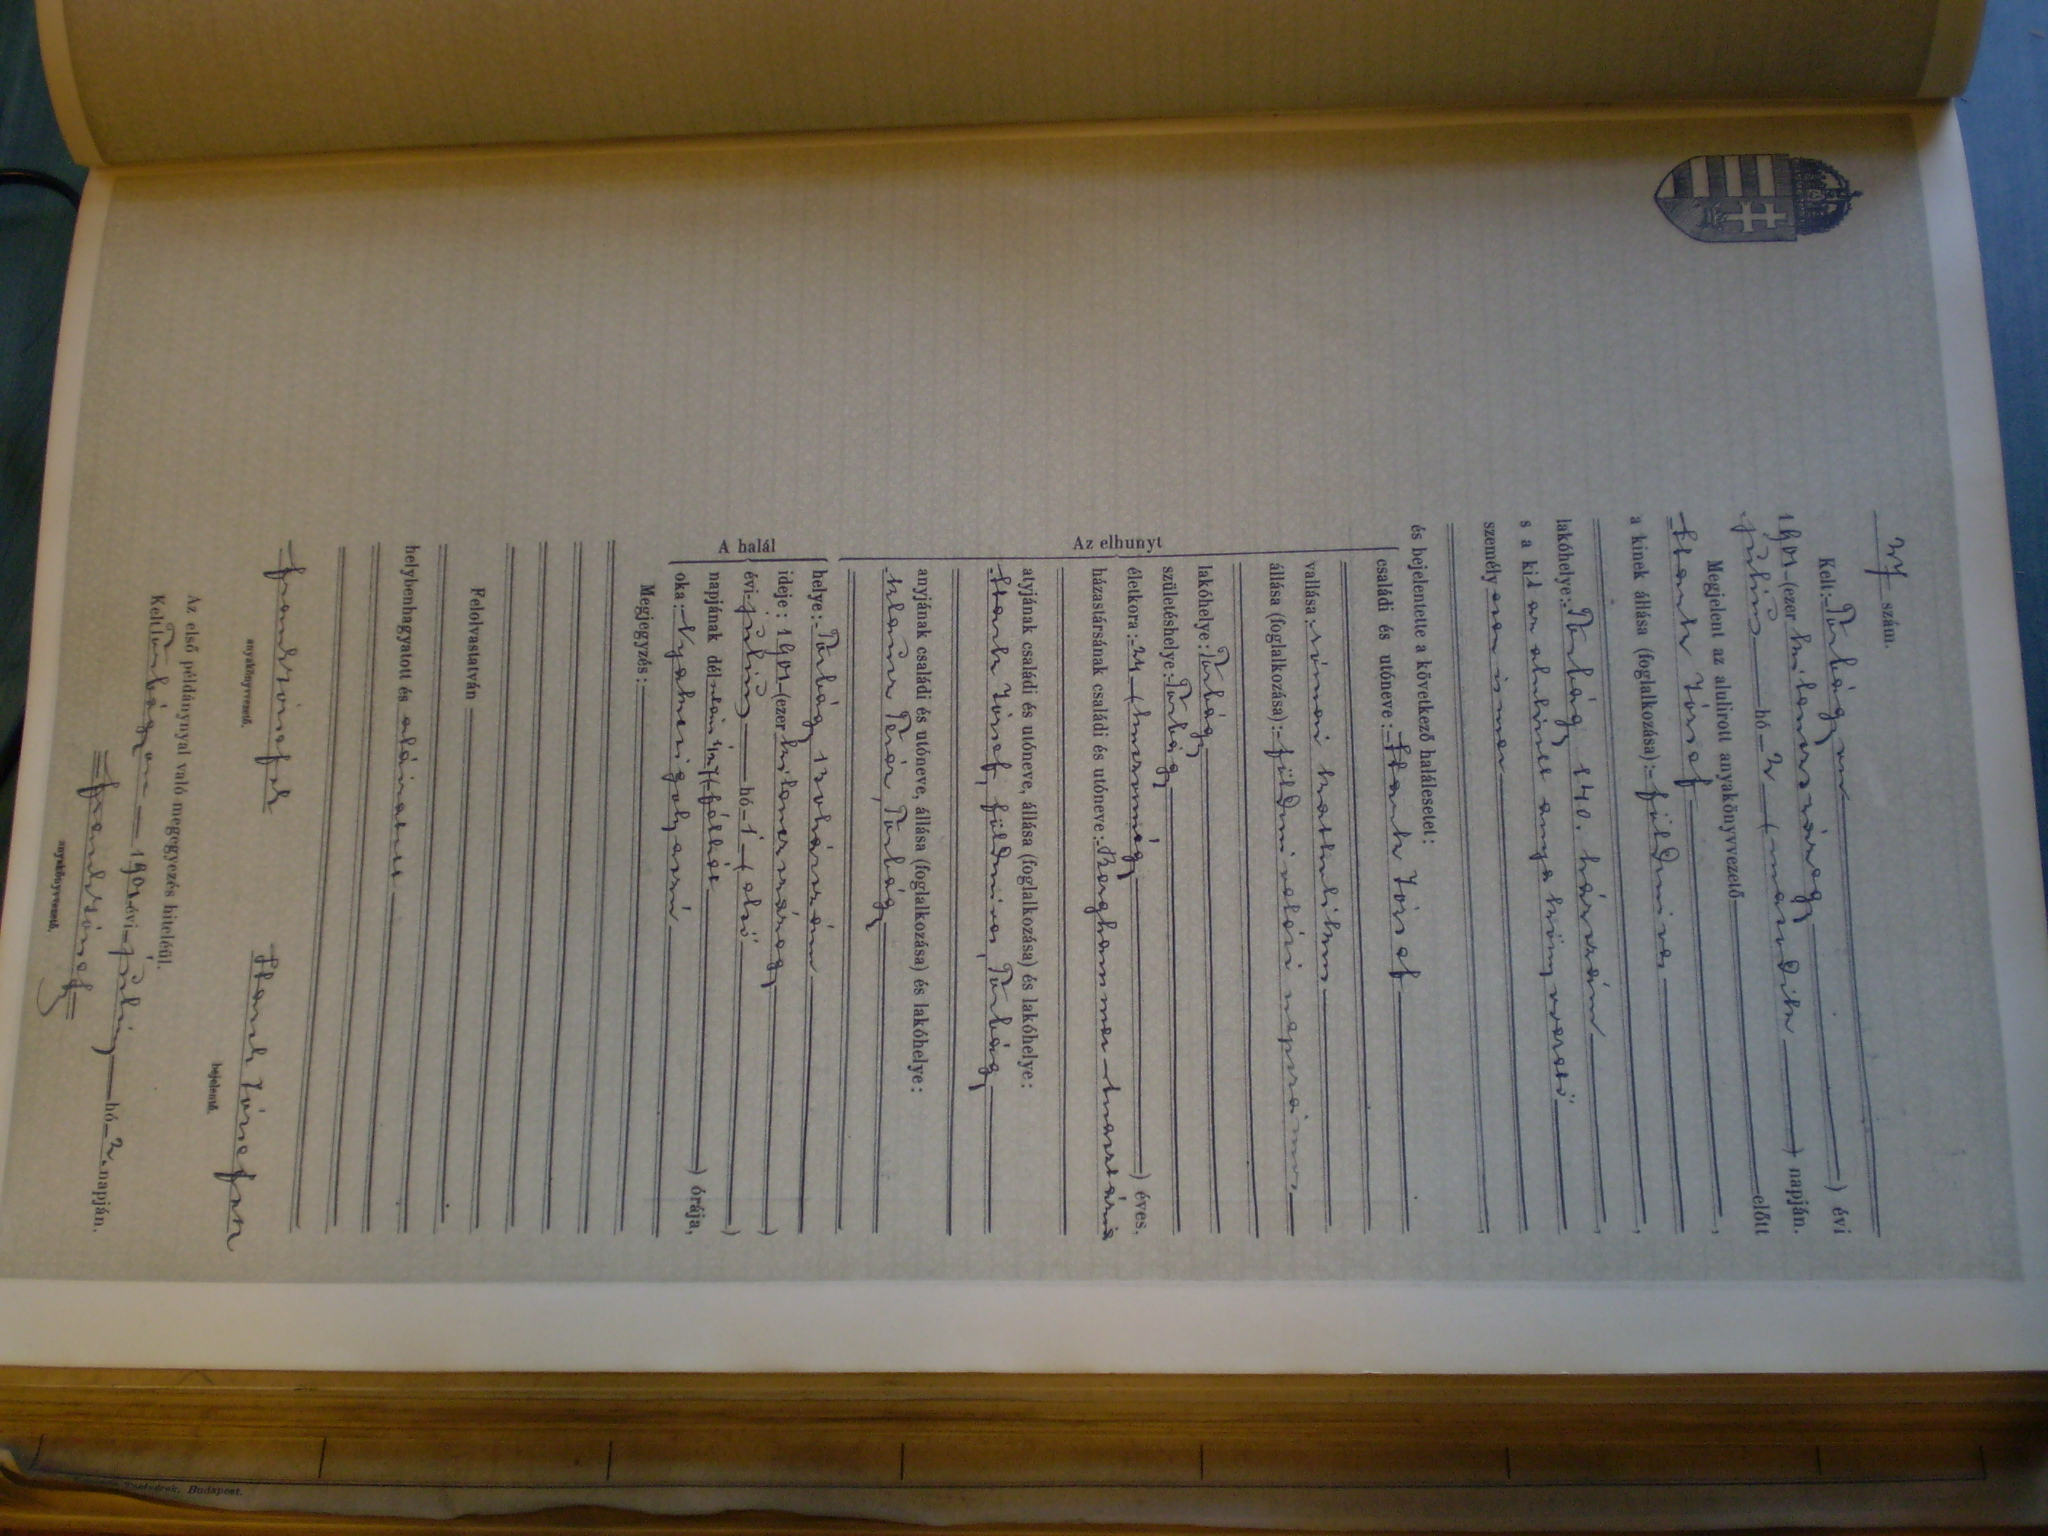 szám.
Kelt: Torbágyon ) évi
1901 (ezer kilenczszázegy
július hó 2 (második ) napján.
Megjelent az alulirott anyakönyvvezető előtt
Stark József,
a kinek állása (foglalkozása): földmíves,
lakóhelye: Torbágy 140. házszám,
s a kit az alulírt anyakönyvvezető
személyesen ismer
és bejelentette a következő halálesetet:
Az elhunyt
családi és utóneve: Stark József
vallása: római katholikus
állása (foglalkozása): földmívelési napszámos,
lakóhelye: Torbágy
születéshelye: Torbágy
életkora: (huszonnégy ) éves.
házastársának családi és utóneve:
atyjának családi és utóneve, állása (foglalkozása) és lakóhelye:
Stark József, földmíves, Torbágy
anyjának családi és utóneve, állása (foglalkozása) és lakóhelye:
Teréz, Torbágy
A halál
helye: Torbágy házszám
ideje: 1901 (ezer kilenczszázegy )
évi július hó 1 (első )
napjának ) órája,
oka:
Megjegyzés:
Felolvastatván
helybenhagyatott és aláíratott
anyakönyvvezető.
Stark József
bejelentő.
Az első példánynyal való megegyezés hiteléül.
Kelt Torbágyon 1901 évi július hó 2. napján.
anyakönyvvezető.
Budapest.